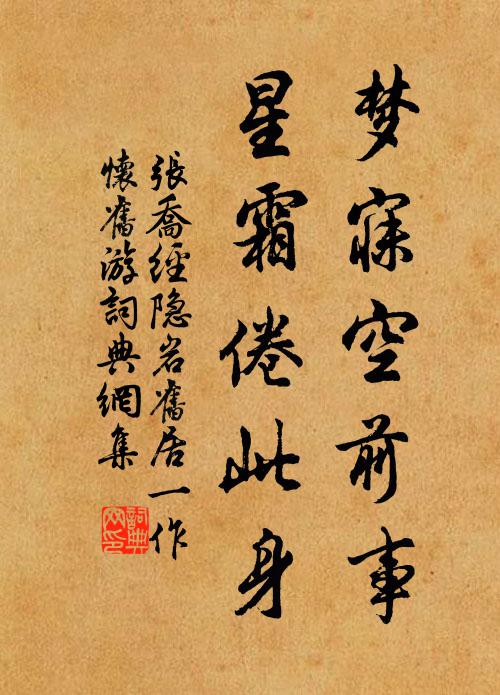 梦寐空前事
星霜倦此身
張喬經隐岩舊居一作
懷舊游詞典網集